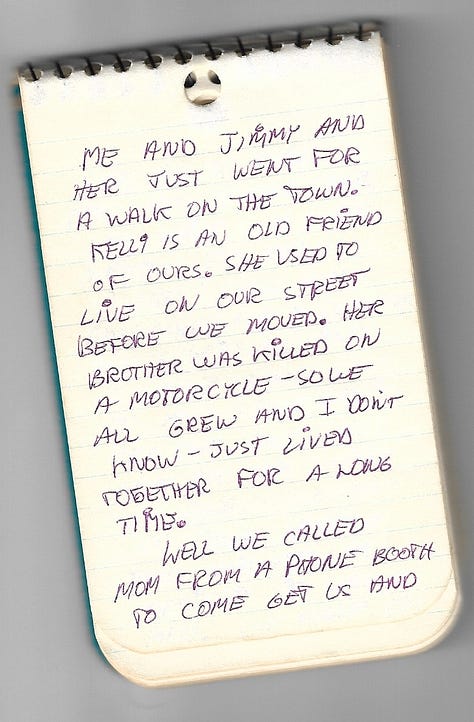 ME AND JIMMY AND
HER JUST WENT FOR
A WALK ON THE TOWN.
KELLY IS AN OLD FRIEND
OF OURS. SHE USED TO
LIVE ON OUR STREET
BEFORE WE MOVED. HER
BROTHER WAS KILLED ON
A MOTORCYCLE - SO WE
ALL GREW AND I DON'T
KNOW - JUST LIVED
TOGETHER FOR A LONG
TIME.
WELL WE CALLED
MOM FROM A PHONE BOOTH
TO COME GET US AND